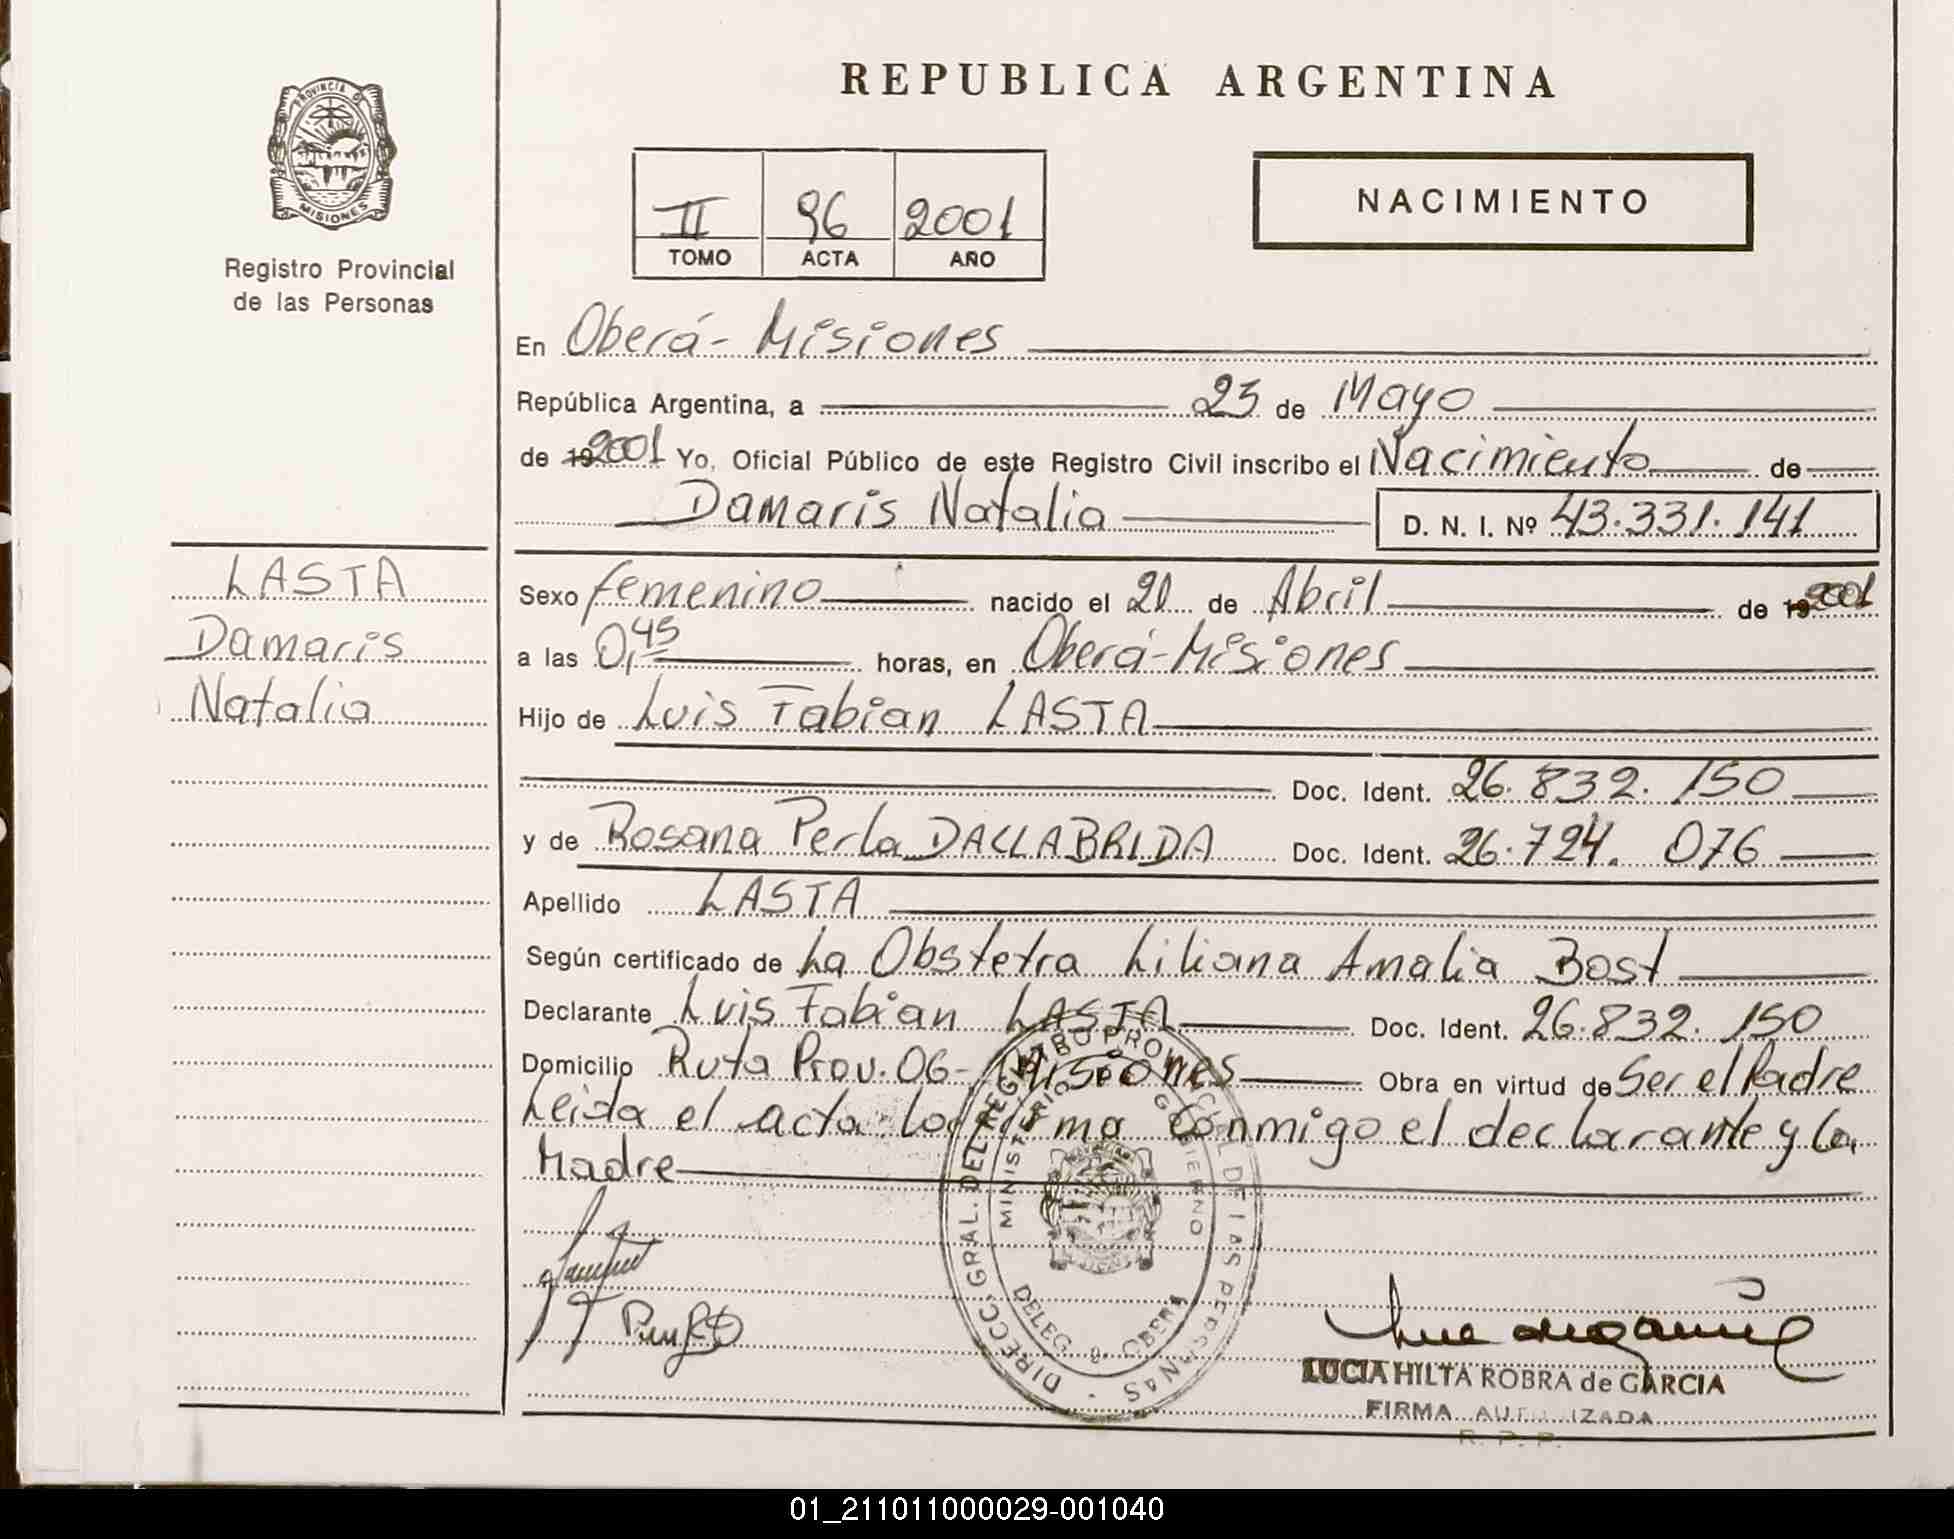 REPUBLICA ARGENTINA
PROVINCIA D
MISIONES
Registro Provincial
de las Personas
II 96 2001
TOMO ACTA AÑO
NACIMIENTO
En Oberá - Misiones
República Argentina, a 23 de Mayo
de 19 2001 Yo, Oficial Público de este Registro Civil inscribo el Nacimiento de
Damaris Natalia
D. N. I. Nº 43.331.141
LASTA
Damaris
Natalia
Sexo femenino nacido el 20 de Abril de 19 2001
a las 0,45 horas, en Oberá - Misiones
Hijo de Luis Fabian LASTA
Doc. Ident. 26.832.150
y de Rosana Perla DALLABRIDA Doc. Ident. 26.724.076
Apellido LASTA
Según certificado de La Obstetra Liliana Amalia Bost
Declarante Luis Fabian LASTA Doc. Ident. 26.832.150
Domicilio Ruta Prov. 06 - Misiones Obra en virtud de Ser el Padre
Leida el acta la firma conmigo el declarante y la
Madre
DIRECC. GRAL. DEL REGISTRO PROVINCIAL DE LAS PERSONAS
MINISTERIO GOBIERNO
DELEG OBERA
LUCIA HILTA ROBRA de GARCIA
FIRMA AUTORIZADA
R. P. P.
01_211011000029-001040